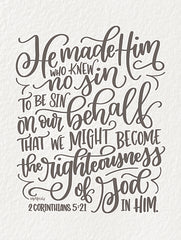 He made Him
WHO KNEW
no sin
TO BE SIN
on our behalf
THAT WE MIGHT BECOME
the righteousness
of God
2 CORINTHIANS 5:21
IN HIM.